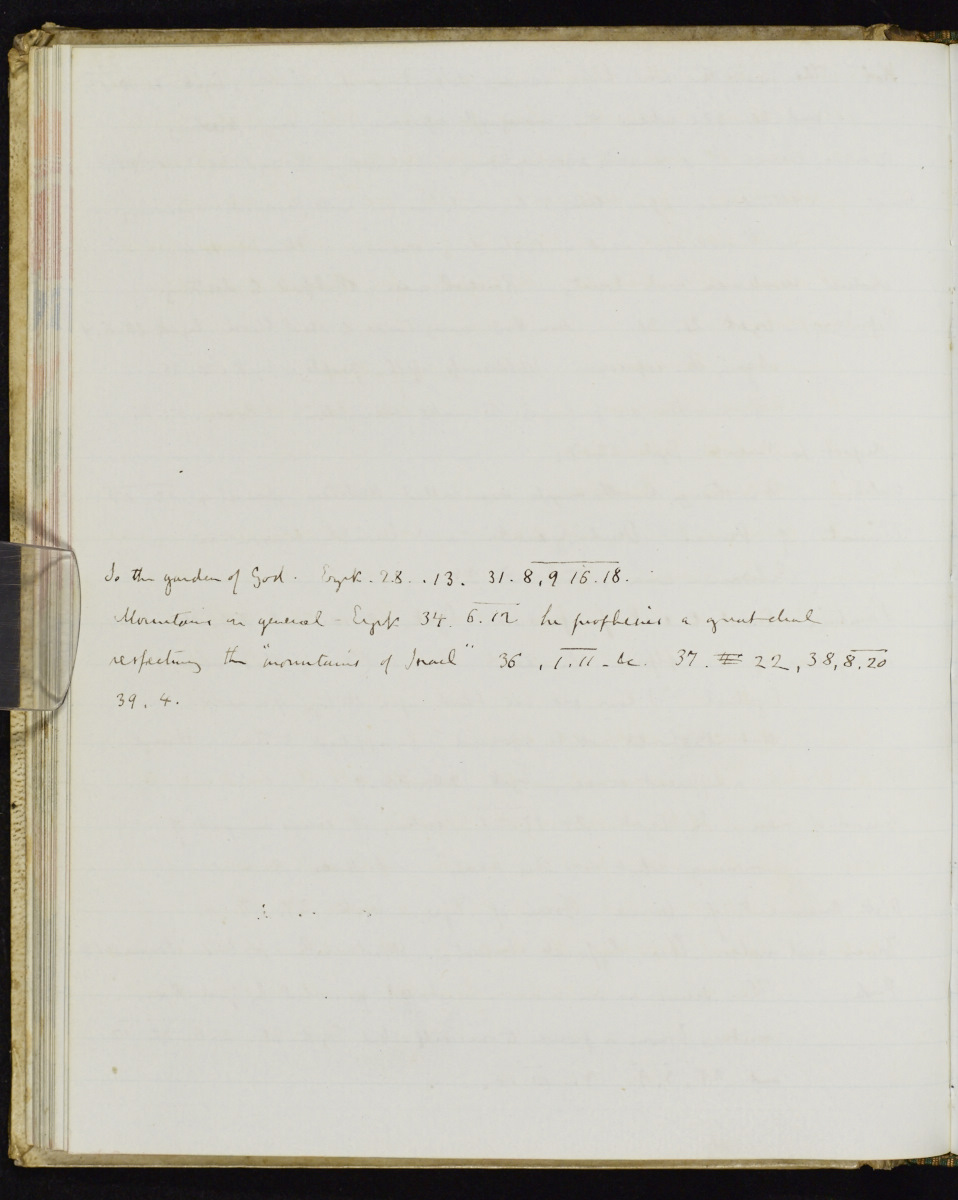 So the garden of God. Ezek. 28. .13. 31. 8,9 16.18.
Mountains in general Ezek 34. 6.12 he prophesies a great deal
respecting the "mountains of Israel" 36, 1.11 - &c. 37. 22, 38, 8.20
39. 4.